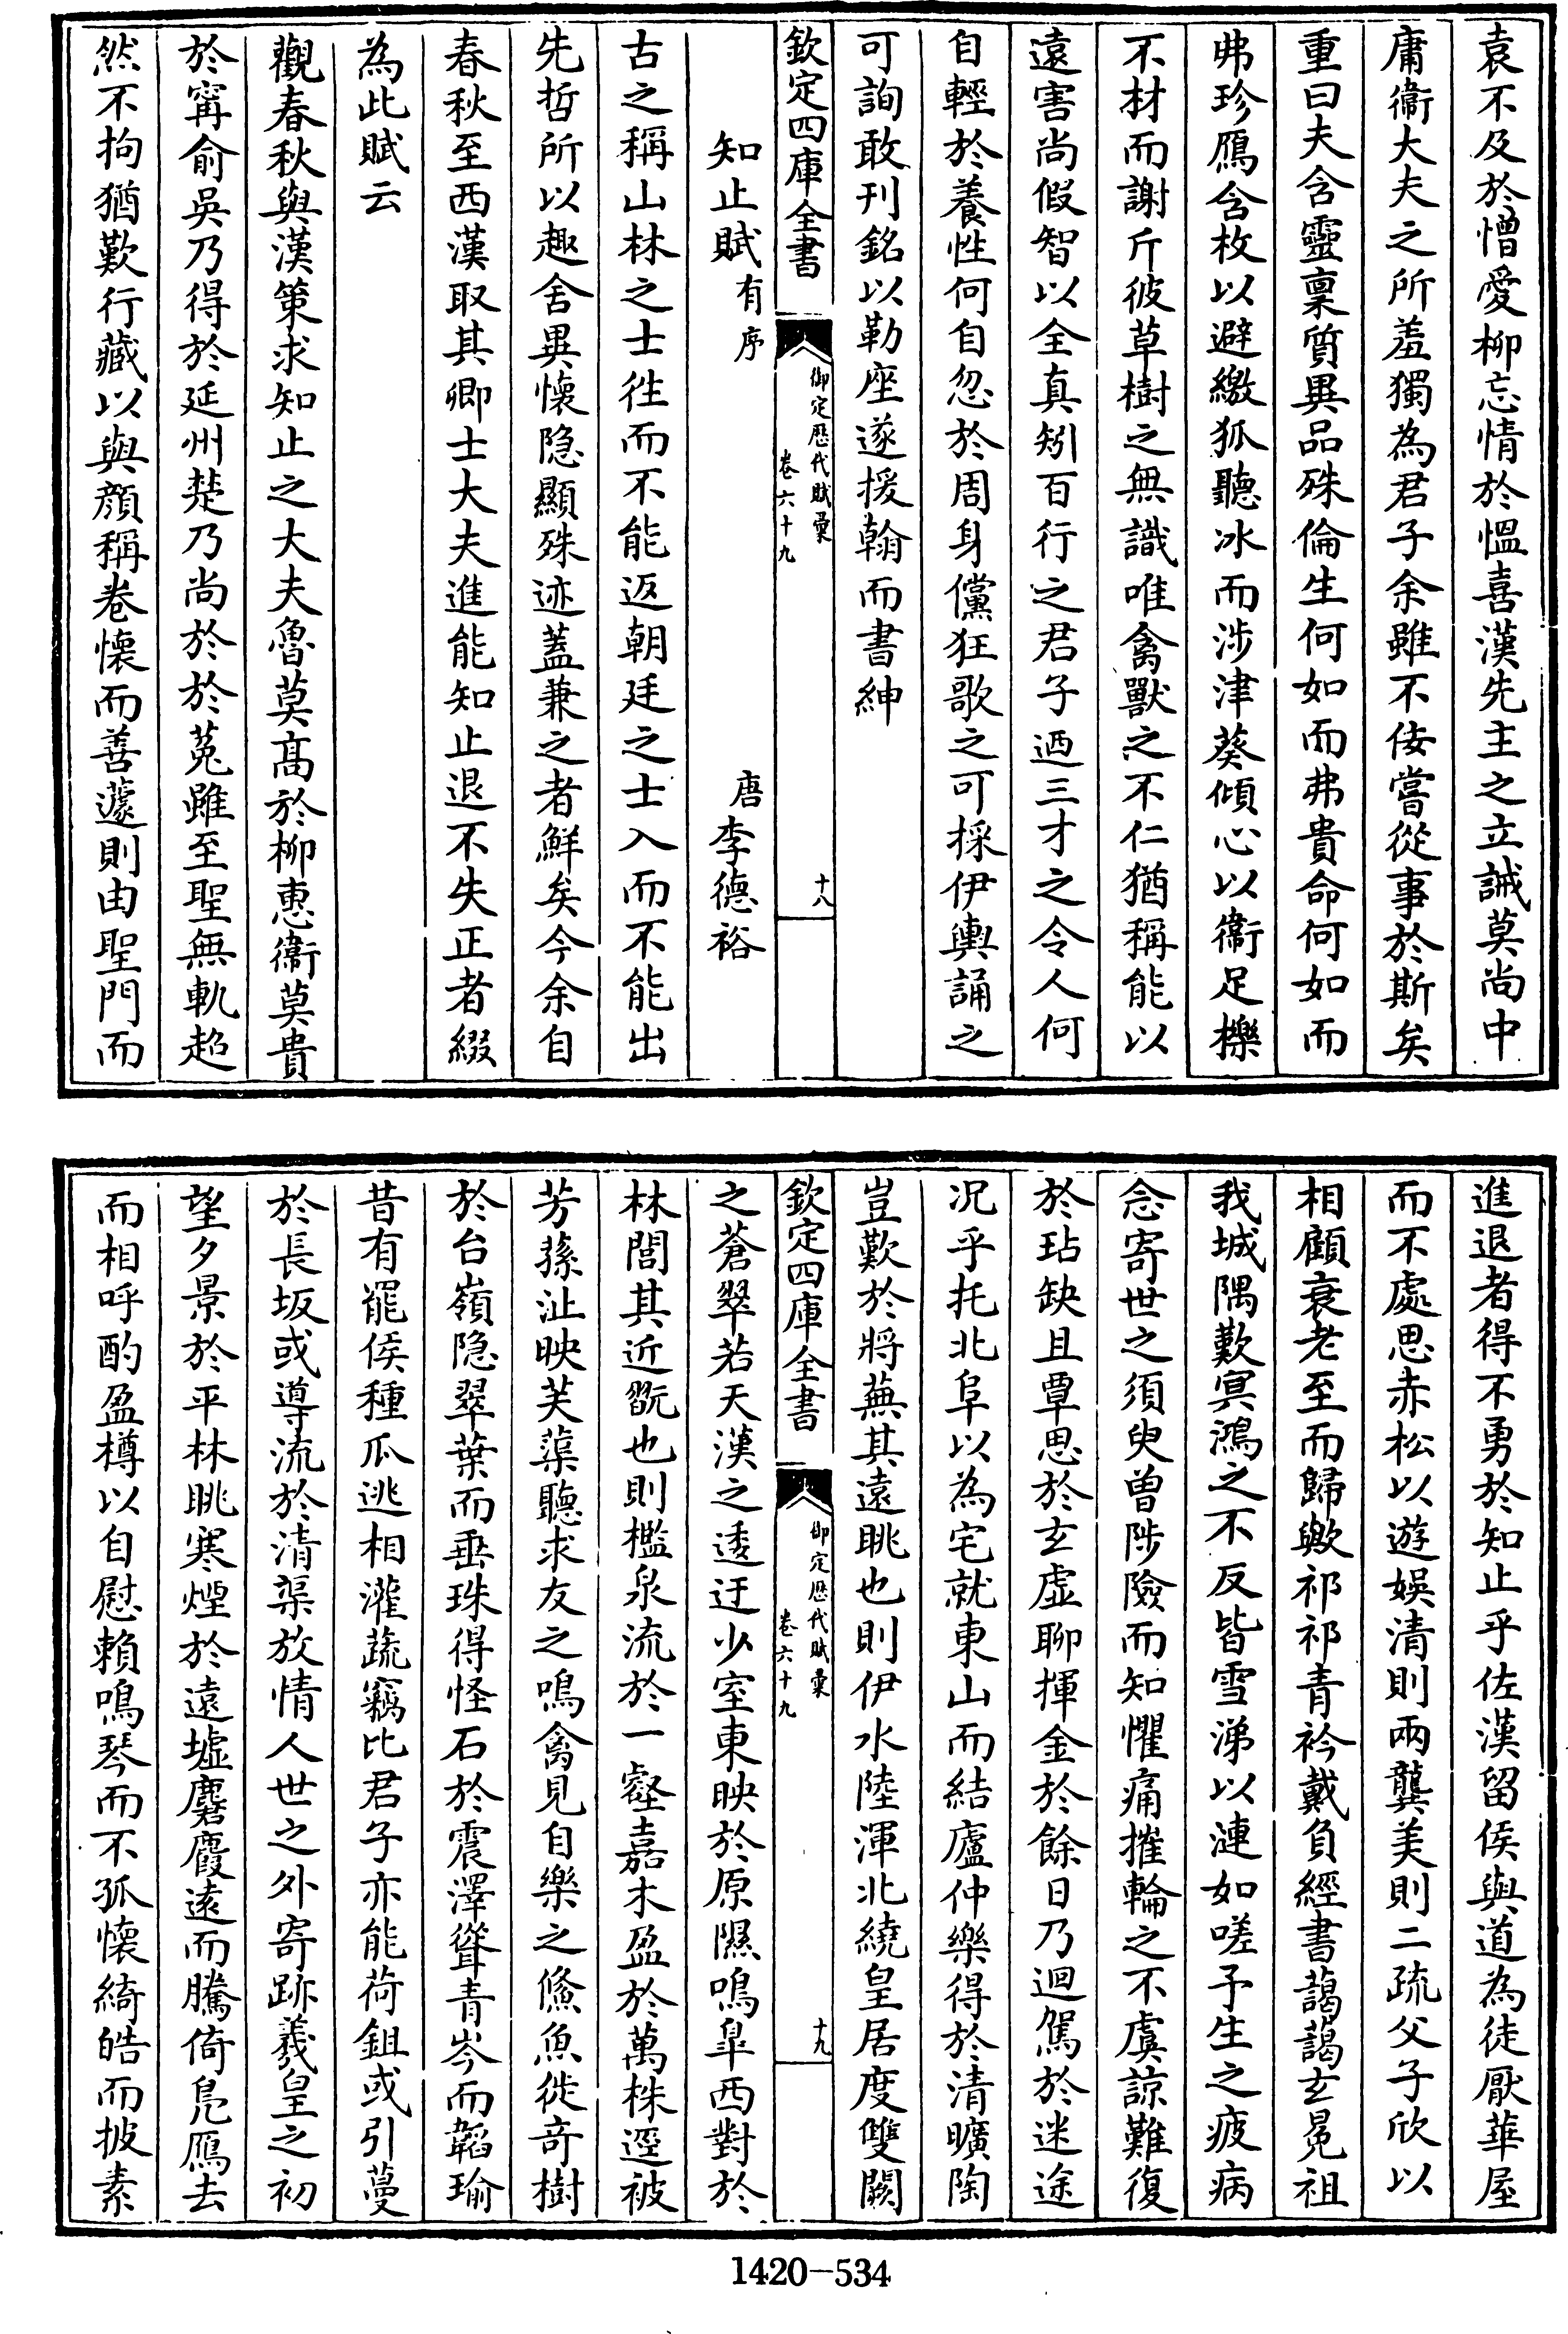 袁不及於憎愛柳忘情於愠喜漢先主之立誡莫尚中
庸衞大夫之所羞獨為君子余雖不佞嘗從事於斯矣
重曰夫含靈稟質異品殊倫生何如而弗貴命何如而
弗珍鴈含枚以避繳狐聽冰而涉津葵傾心以衞足櫟
不材而謝斤彼草樹之無識唯禽獸之不仁猶稱能以
遠害尚假智以全真矧百行之君子迺三才之令人何
自輕於養性何自忽於周身儻狂歌之可採伊輿誦之
可詢敢刊銘以勒座遂援翰而書紳
欽定四庫全書
御定歷代賦彙
卷六十九
十八
知止賦有序
唐李德裕
古之稱山林之士徃而不能返朝廷之士入而不能出
先哲所以趣舍異懷隐顯殊迹蓋兼之者鮮矣今余自
春秋至西漢取其卿士大夫進能知止退不失正者綴
為此賦云
觀春秋與漢策求知止之大夫魯莫髙於柳惠衞莫貴
於甯俞吳乃得於延州楚乃尚於於菟雖至聖無軌超
然不拘猶歎行藏以與顔稱卷懷而善蘧則由聖門而
進退者得不勇於知止乎佐漢留侯與道為徒厭華屋
而不處思赤松以遊娱清則兩龔美則二疏父子欣以
相顧衰老至而歸歟祁祁青衿戴負經書藹藹玄冕祖
我城隅歎冥鴻之不反皆雪涕以漣如嗟予生之疲病
念寄世之須臾曽陟險而知懼痛摧輪之不虞諒難復
於玷缺且覃思於玄虚聊揮金於餘日乃迴駕於迷途
况乎托北阜以為宅就東山而結廬仲樂得於清曠陶
豈歎於將蕪其遠眺也則伊水陸渾北繞皇居度雙闕
欽定四庫全書
御定歷代賦彙
卷六十九
十九
之蒼翠若天漢之逶迂少室東映於原隰鳴臯西對於
林閭其近翫也則檻泉流於一壑嘉木盈於萬株逕被
芳蓀沚映芙蕖聽求友之鳴禽見自樂之鯈魚徙竒樹
於台嶺隐翠葉而垂珠得怪石於震澤聳青岑而韜瑜
昔有罷侯種瓜逃相灌蔬竊比君子亦能荷鉏或引蔓
於長坂或導流於清渠放情人世之外寄跡羲皇之初
望夕景於平林眺寒煙於遠墟麏麚遠而騰倚鳬鴈去
而相呼酌盈樽以自慰頼鳴琴而不孤懷綺皓而披素
1420—534